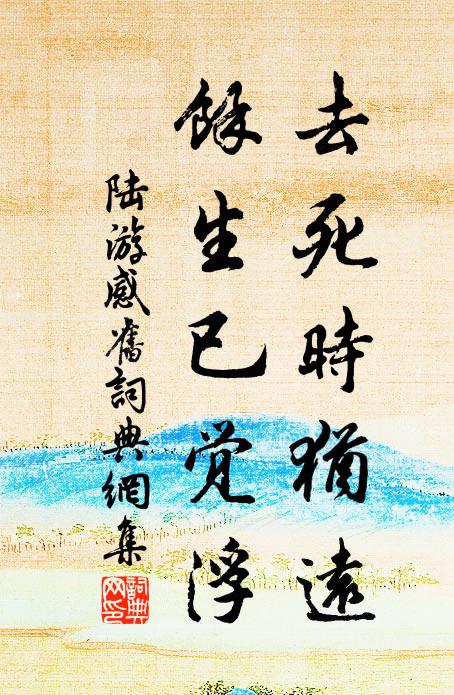 去死時猶遠
餘生已觉浮
陆游感舊詞典網集
詞典